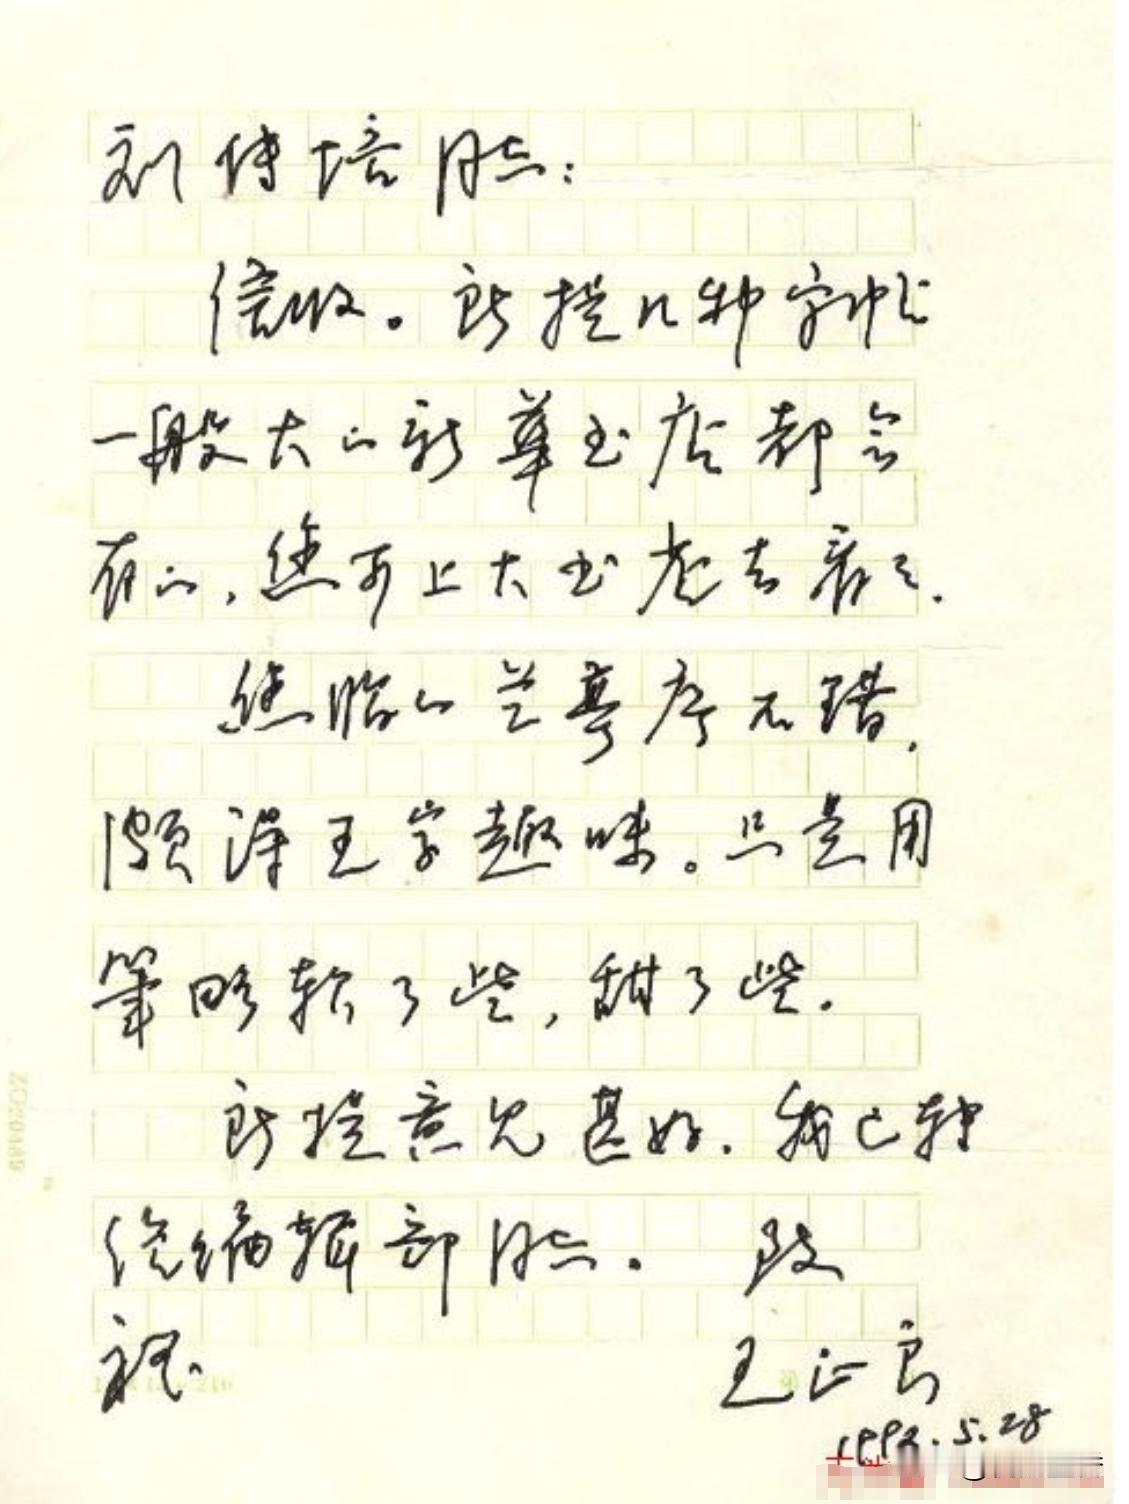 刘传培同志：
信收。所提几种字帖
一般大的新华书店都会
有的，您可上大书店去看看.
您临的兰亭序不错，
颇得王字趣味。只是用
笔略软了些，甜了些.
所提意见甚好.我已转
给编辑部同志.致
礼
王正良
1992.5.28